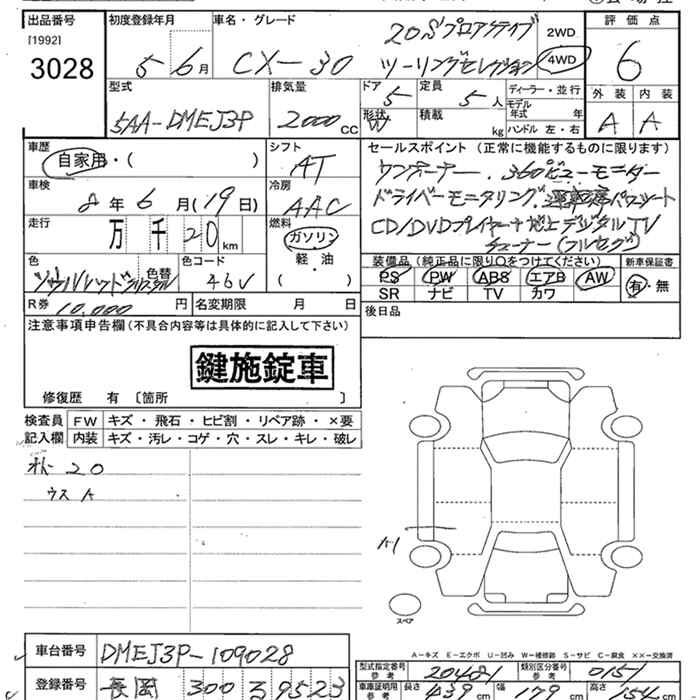 出品番号 初度登録年月 車名・グレード 評価点
[1992]
3028 5 6月 CX-30 20Sプロアクティブ 2WD 6
ツーリングセレクション 4WD
型式 排気量 ドア 定員 ディーラー・並行 外装 内装
5AA-DMEJ3P 2000 cc 5 5人 モデル年式 年
形状 W 積載 kg ハンドル 左・右 A A
車歴 シフト セールスポイント (正常に機能するものに限ります)
自家用・( ) AT ワンオーナー. 360°ビューモニター
車検 冷房 ドライバーモニタリング. 運転席パワーシート
8年 6月(19日) AAC CD/DVDプレイヤー+地上デジタルTV
走行 燃料 チューナー(フルセグ)
万 千 20 km ガソリン
軽・油
( )
色 色替 色コード 装備品 (純正品に限り○をつけてください) 新車保証書
ソウルレッドクリスタル 46V PS PW ABS エアB AW 有・無
SR ナビ TV カワ
R券 10,000 円 名変期限 月 日 後日品
注意事項申告欄 (不具合内容等は具体的に記入して下さい)
鍵施錠車
修復歴 有 [箇所 ]
検査員 FW キズ・飛石・ヒビ割・リペア跡・×要
記入欄 内装 キズ・汚レ・コゲ・穴・スレ・キレ・破レ
20
ウス A
A1
スペア
A-キズ E-エクボ U-凹み W-補修跡 S-サビ C-腐食 ××-交換済
車台番号 DMEJ3P-109028 型式指定番号 参考 20401 類別区分番号 参考 0151
登録番号 長岡 300 る 9523 車庫証明用 参考 長さ 439 cm 幅 179 cm 高さ 154 cm